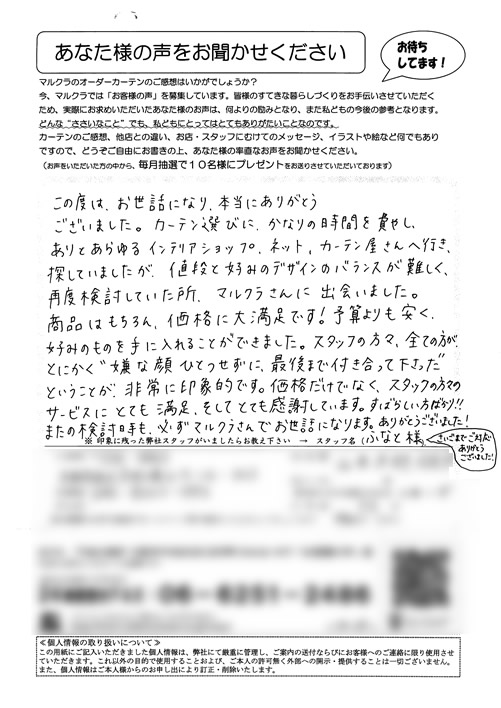 あなた様の声をお聞かせください
お待ち
してます！
マルクラのオーダーカーテンのご感想はいかがでしょうか？
今、マルクラでは「お客様の声」を募集しています。皆様のすてきな暮らしづくりをお手伝いさせていただく
ため、実際にお求めいただいたあなた様のお声は、何よりの励みとなり、また私どもの今後の参考となります。
どんな“ささいなこと”でも、私どもにとってはとてもありがたいことなのです。
カーテンのご感想、他店との違い、お店・スタッフにむけてのメッセージ、イラストや絵など何でもあり
ですので、どうぞご自由にお書きの上、あなた様の率直なお声をお聞かせください。
（お声をいただいた方の中から、毎月抽選で１０名様にプレゼントをお送りさせていただいております）
この度は、お世話になり、本当にありがとう
ございました。カーテン選びに、かなりの時間を費やし、
ありとあらゆるインテリアショップ、ネット、カーテン屋さんへ行き、
探していましたが、値段と好みのデザインのバランスが難しく、
再度検討していた所、マルクラさんに出会いました。
商品はもちろん、価格に大満足です！予算よりも安く、
好みのものを手に入れることができました。スタッフの方々、全ての方が、
とにかく“嫌な顔ひとつせずに、最後まで付き合って下さった”
ということが、非常に印象的です。価格だけでなく、スタッフの方々の
サービスにとても満足、そしてとても感謝しています。すばらしい方ばかり!!
またの検討日時も、必ずマルクラさんでお世話になります。ありがとうございました！
※ 印象に残った弊社スタッフがいましたらお教え下さい → スタッフ名（ふなと様）
さいごまでご対応
ありがとう
ございました！
06-6251-2486
≪個人情報の取り扱いについて≫
この用紙にご記入いただきました個人情報は、弊社にて厳重に管理し、ご案内の送付ならびにお客様へのご連絡に限り使用させ
ていただきます。これ以外の目的で使用することおよび、ご本人の許可無く外部への開示・提供することは一切ございません。
また、個人情報はご本人様からのお申し出により訂正・削除いたします。